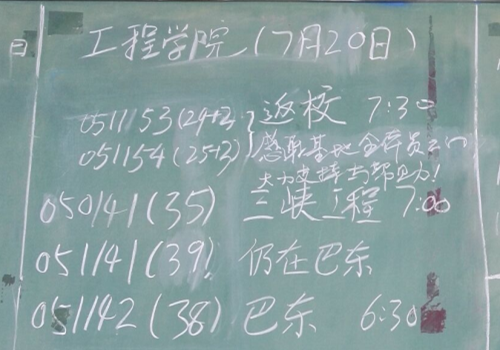 日
工程学院(7月20日)
051153(24+2) 返校 7:30
051154(25+2) 感联基地全体员工们
大力支持与帮助!
050141(35) 三峡工程 7:00
051141(39) 仍在巴东
051142(38) 巴东 6:30